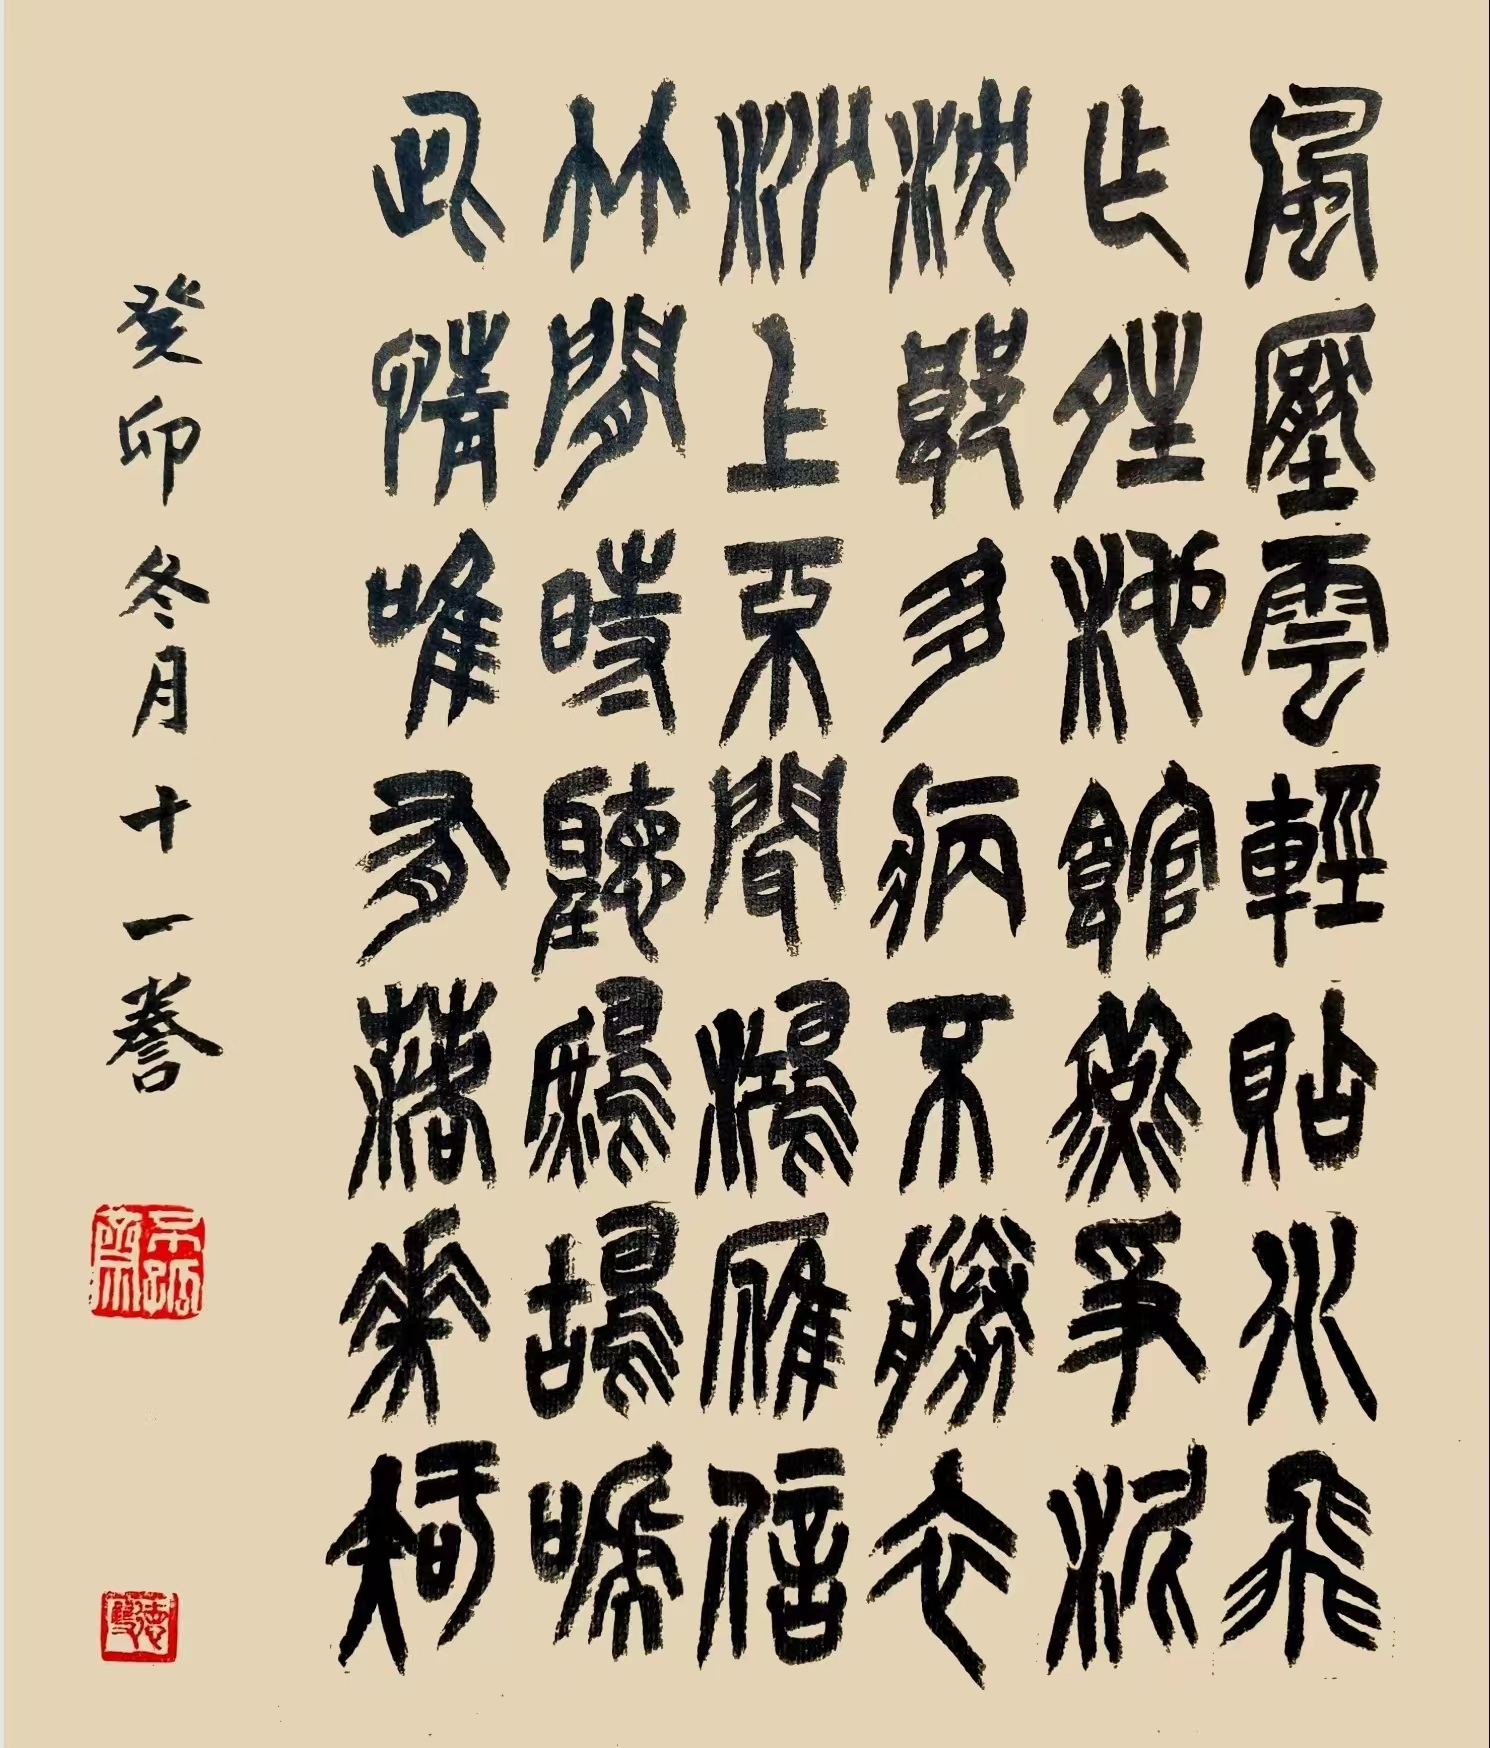 風壓雲輕貼水飛
乍夝池館燕爭泥
沈郎多病不勝衣
沙上不聞鴻雁信
竹間時聽鷓鴣啼
此情唯有落花知
癸卯冬月十一誊